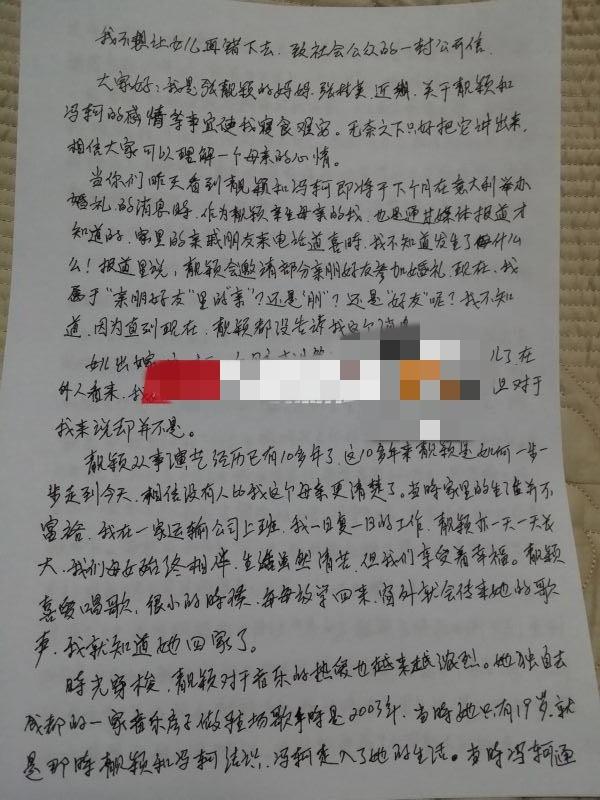 我不想让女儿再错下去．致社会公众的一封公开信．
大家好：我是张靓颖的妈妈．张桂英．近期．关于靓颖和
冯轲的感情等事宜使我寝食难安。无奈之下只好把它讲出来，
相信大家可以理解一个母亲的心情。
当你们昨天看到靓颖和冯轲即将于下个月在意大利举办
婚礼的消息时．作为靓颖亲生母亲的我．也是通过媒体报道才
知道的．家里的亲戚朋友来电话道喜时．我不知道发生了什么
么！报道里说，靓颖会邀请部分亲朋好友参加婚礼．现在．我
属于“亲朋好友”里的“亲”？还是“朋”？还是“好友”呢？我不知
道．因为直到现在．靓颖都没告诉我这个消息
女儿出嫁 儿了．在
外人看来．我 但对于
我来说却并不是。
靓颖从事演艺经历已有10多年了．这10多年来靓颖是如何一步一
步走到今天．相信没有人比我这个母亲更清楚了。当时家里的生活并不
富裕．我在一家运输公司上班．我一日复一日的工作．靓颖亦一天一天长
大．我们母女始终相伴．生活虽然清苦．但我们享受着幸福。靓颖
喜爱唱歌．很小的时候．每每放学回来．窗外就会传来她的歌
声．我就知道她回家了。
时光穿梭．靓颖对于音乐的热爱也越来越浓烈。她独自去
成都的一家音乐房子做驻场歌手时是2003年．当时她只有19岁．就
是那时靓颖和冯轲结识．冯轲走入了她的生活。当时冯轲通